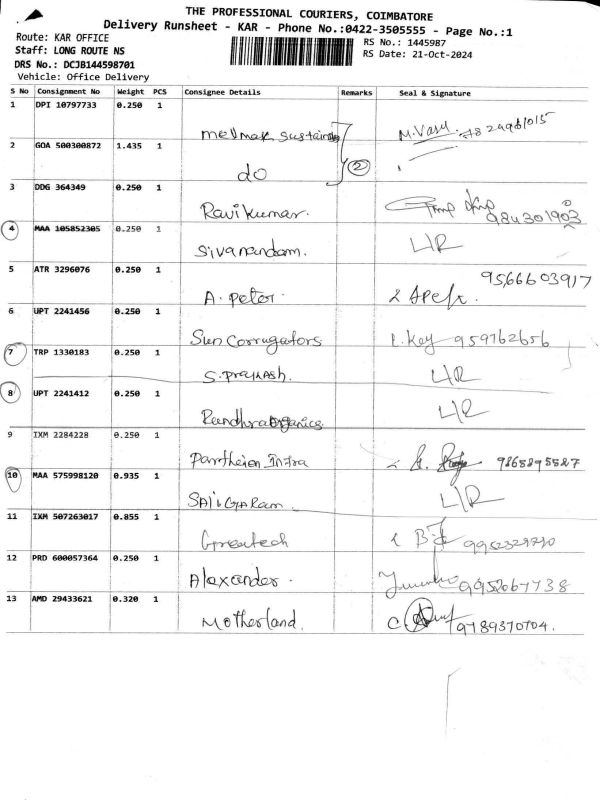 THE PROFESSIONAL COURIERS, COIMBATORE
Delivery Runsheet - KAR - Phone No.:0422-3505555 - Page No.:1
Route: KAR OFFICE
RS No.: 1445987
Staff: LONG ROUTE NS
RS Date: 21-Oct-2024
DRS No.: DCJB144598701
Vehicle: Office Delivery
S No Consignment No Weight PCS Consignee Details Remarks Seal & Signature
1 DPI 10797733 0.250 1
Medmak M.Vasu.
2 GOA 500300872 1.435 1 2
do
3 DDG 364349 0.250 1
Ravi Kumar. 984301903
4 MAA 105852305 0.250 1
Sivanandam. L/R
5 ATR 3296076 0.250 1 9566603917
A. Peter.
6 UPT 2241456 0.250 1
Sun Corrugators 959762656
7 TRP 1330183 0.250 1
S. Prakash. L/R
8 UPT 2241412 0.250 1 L/R
organics
9 IXM 2284228 0.250 1
Infra 9865295527
10 MAA 575998120 0.935 1
L/R
11 IXM 507263017 0.855 1
Greatech
12 PRD 600057364 0.250 1
Alexander. 9952067738
13 AMD 29433621 0.320 1
Motherland. 9789370704.